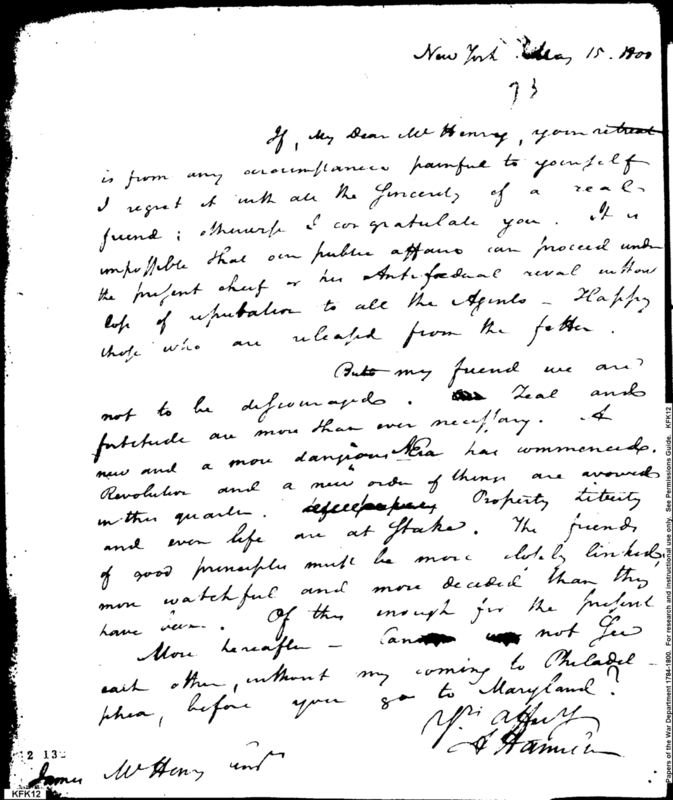 New York May 15. 1800
If, My Dear Mc Henry, your retreat
is from any circumstances painful to yourself
I regret it with all the sincerity of a real
friend; otherwise I congratulate you. It is
impossible that our public affairs can proceed under
the present chief or his Antifœderal rival without
loss of reputation to all the Agents — Happy
those who are released from the fetter.
But my friend we are
not to be discouraged. Zeal and
fortitude are more than ever necessary. A
new and a more dangerous Æra has commenced.
Revolution and a new order of things are avowed
in this quarter. Property Liberty
and even life are at Stake. The friends
of good principles must be more closely linked,
more watchful and more decided than they
have been. Of this enough for the present
More hereafter — Can not See
each other, without my coming to Philadel-
phia, before you go to Maryland?
Yrs Affecly
A Hamilton
2 13
James Mc Henry
KFK12
Papers of the War Department 1784-1800. For research and instructional use only. See Permissions Guide. KFK12